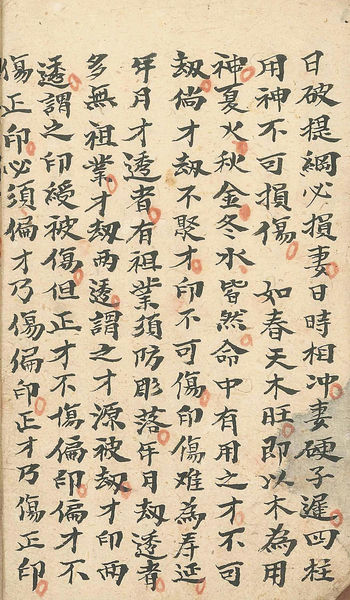 日破提綱必損妻日時相冲妻硬子遲四柱
用神不可損傷　如春天木旺即以木為用
神夏火秋金冬水皆然命中有用之才不可
刼倘才刼不聚才印不可傷印傷难為寿延
年月才透者有祖業須防彫落年月刼透者
多無祖業才刼兩透謂之才源被刼才印兩
透謂之印綬被傷但正才不傷偏印偏才不
傷正印必須偏才乃傷偏印正才乃傷正印